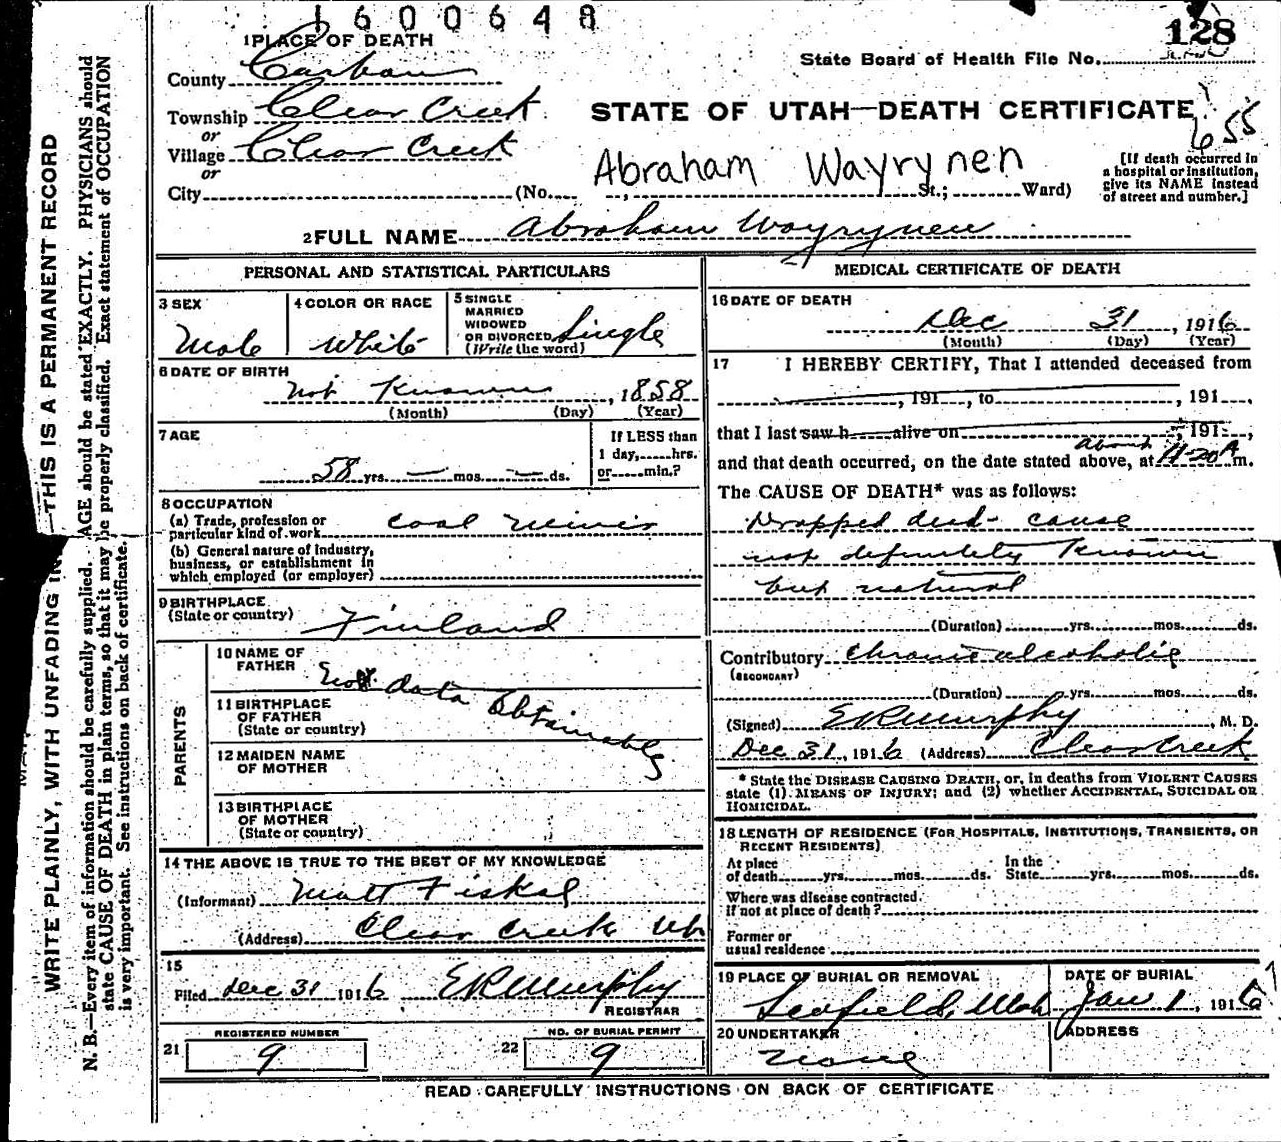 1600648
128
1 PLACE OF DEATH
State Board of Health File No.
County Carbon
Township Clear Creek
STATE OF UTAH—DEATH CERTIFICATE
655
or
Village Clear Creek
or
City (No. St.; Ward)
Abraham Wayrynen
[If death occurred in
a hospital or institution,
give its NAME instead
of street and number.]
2 FULL NAME Abraham Wayrynen
PERSONAL AND STATISTICAL PARTICULARS
3 SEX
Male
4 COLOR OR RACE
White
5 SINGLE
MARRIED
WIDOWED
OR DIVORCED
(Write the word)
Single
6 DATE OF BIRTH
Not Known, 1858
(Month) (Day) (Year)
7 AGE
58 yrs. — mos. — ds.
If LESS than
1 day, hrs.
or min.?
8 OCCUPATION
(a) Trade, profession or
particular kind of work Coal Miner
(b) General nature of industry,
business, or establishment in
which employed (or employer)
9 BIRTHPLACE
(State or country)
Finland
PARENTS
10 NAME OF
FATHER
Not data Obtainable
11 BIRTHPLACE
OF FATHER
(State or country)
12 MAIDEN NAME
OF MOTHER
13 BIRTHPLACE
OF MOTHER
(State or country)
14 THE ABOVE IS TRUE TO THE BEST OF MY KNOWLEDGE
(Informant) Matt Fiskal
(Address) Clear Creek Ut
15
Filed Dec 31 1916 ERMurphy
REGISTRAR
REGISTERED NUMBER
21 9
NO. OF BURIAL PERMIT
22 9
MEDICAL CERTIFICATE OF DEATH
16 DATE OF DEATH
Dec 31, 1916
(Month) (Day) (Year)
17 I HEREBY CERTIFY, That I attended deceased from
, 191 , to , 191 ,
that I last saw h alive on , 191 ,
about
and that death occurred, on the date stated above, at 11-20 A m.
The CAUSE OF DEATH* was as follows:
Dropped dead - cause
not definitely known
but natural
(Duration) yrs. mos. ds.
Contributory Chronic alcoholic
(SECONDARY)
(Duration) yrs. mos. ds.
(Signed) ERMurphy, M. D.
Dec 31, 1916 (Address) Clear Creek
* State the DISEASE CAUSING DEATH, or, in deaths from VIOLENT CAUSES
state (1) MEANS OF INJURY; and (2) whether ACCIDENTAL, SUICIDAL OR
HOMICIDAL.
18 LENGTH OF RESIDENCE (FOR HOSPITALS, INSTITUTIONS, TRANSIENTS, OR
RECENT RESIDENTS)
At place
of death yrs. mos. ds.
In the
State yrs. mos. ds.
Where was disease contracted
if not at place of death?
Former or
usual residence
19 PLACE OF BURIAL OR REMOVAL
Scofield, Utah
DATE OF BURIAL
Jan 1, 1916 7
20 UNDERTAKER
None
ADDRESS
READ CAREFULLY INSTRUCTIONS ON BACK OF CERTIFICATE
WRITE PLAINLY, WITH UNFADING IN —THIS IS A PERMANENT RECORD
N. B.—Every item of information should be carefully supplied. AGE should be stated EXACTLY. PHYSICIANS should
state CAUSE OF DEATH in plain terms, so that it may be properly classified. Exact statement of OCCUPATION
is very important. See instructions on back of certificate.